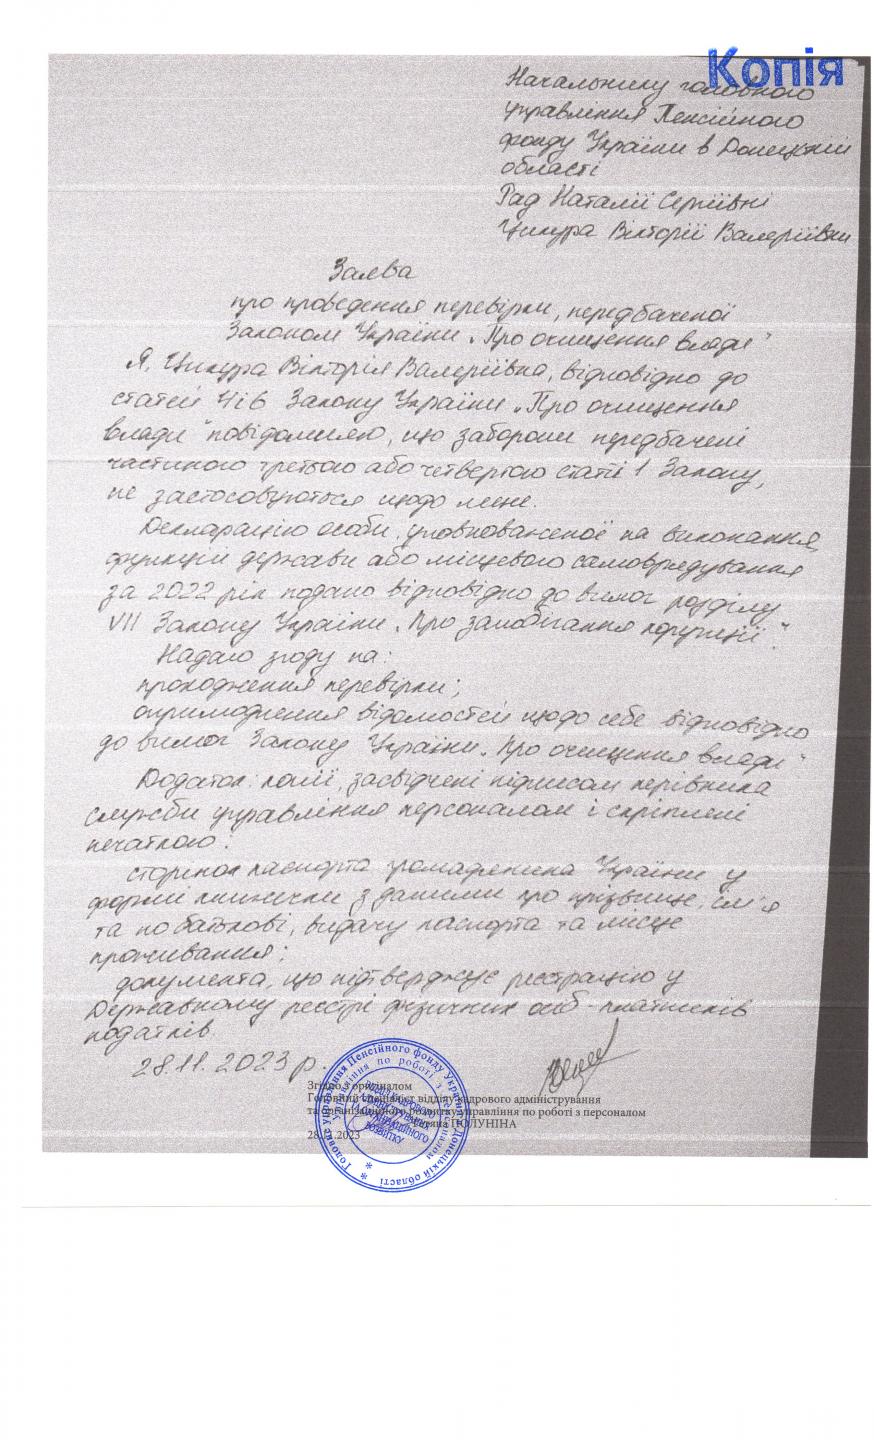 Копія
Начальнику головного
управління Пенсійного
фонду України в Донецькій
області
Рад Наталії Сергіївні
Цикура Вікторії Валеріївни
Заява
про проведення перевірки, передбаченої
Законом України „Про очищення влади"
Я, Цикура Вікторія Валеріївна, відповідно до
статей 4 і 6 Закону України „Про очищення
влади" повідомляю, що заборони передбачені
частиною третьою або четвертою статті 1 Закону,
не застосовуються щодо мене.
Декларацію особи, уповноваженої на виконання
функцій держави або місцевого самоврядування
за 2022 рік подано відповідно до вимог розділу
VII Закону України „Про запобігання корупції".
Надаю згоду на:
проходження перевірки;
оприлюднення відомостей щодо себе відповідно
до вимог Закону України „Про очищення влади"
Додаток: копії, засвідчені підписом керівника
служби управління персоналом і скріплені
печаткою:
сторінок паспорта громадянина України у
формі книжечки з даними про прізвище, ім'я
та по батькові, видачу паспорта та місце
проживання;
документа, що підтверджує реєстрацію у
Державному реєстрі фізичних осіб - платників
податків.
28.11.2023 р.
Згідно з оригіналом
Головний спеціаліст відділу кадрового адміністрування
та організаційного розвитку управління по роботі з персоналом
ПОЛУНІНА
28.11.2023
Головне управління Пенсійного фонду України в Донецькій області
Управління по роботі з персоналом
ВІДДІЛ КАДРОВОГО
АДМІНІСТРУВАННЯ
ТА ОРГАНІЗАЦІЙНОГО
РОЗВИТКУ